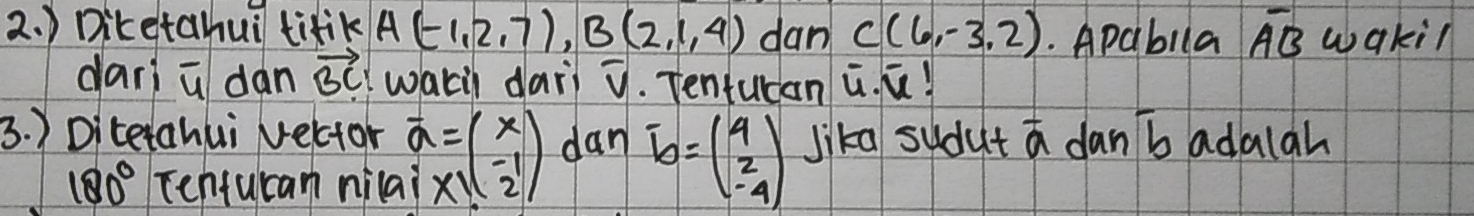 2.) Diketahui titik A(-1,2,7), B(2,1,4) dan C(6,-3,2). Apabila AB̅ wakil
dari ū dan BC⃗ wakil dari v̄. Tentukan ū.ū!
3.) Diketahui vektor ā = (x -1 2) dan b̄ = (4 2 -4) Jika sudut ā dan b̄ adalah
180° Tentukan nilai x!